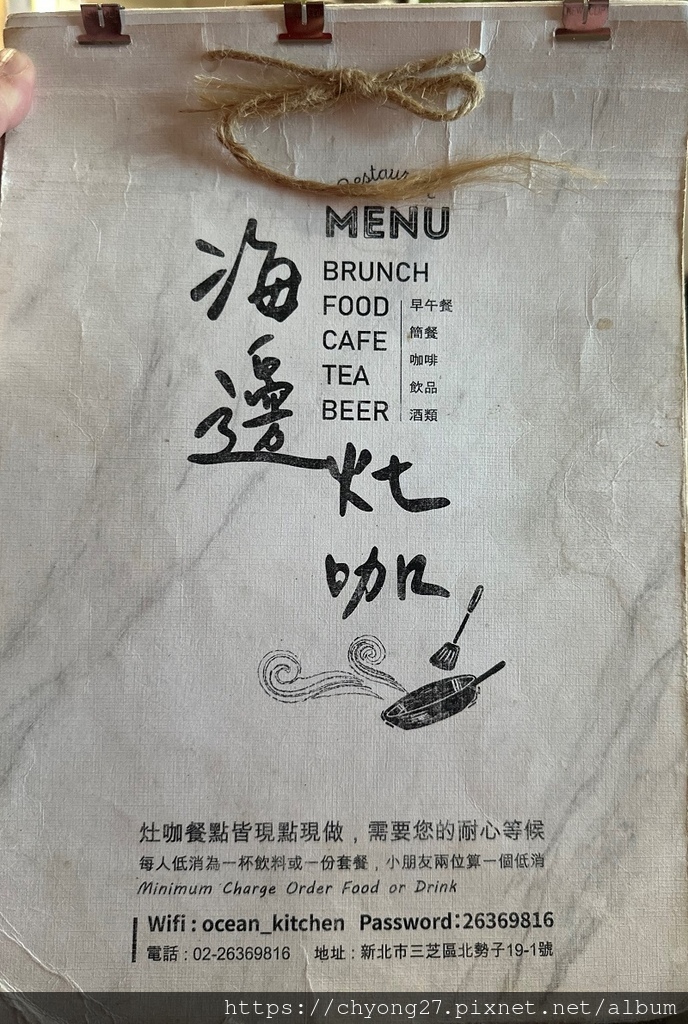 MENU
海邊灶咖
BRUNCH
FOOD
CAFE
TEA
BEER
早午餐
簡餐
咖啡
飲品
酒類
灶咖餐點皆現點現做，需要您的耐心等候
每人低消為一杯飲料或一份套餐，小朋友兩位算一個低消
Minimum Charge Order Food or Drink
Wifi : ocean_kitchen Password:26369816
電話 : 02-26369816 地址 : 新北市三芝區北勢子19-1號
https://chyong27.pixnet.net/album